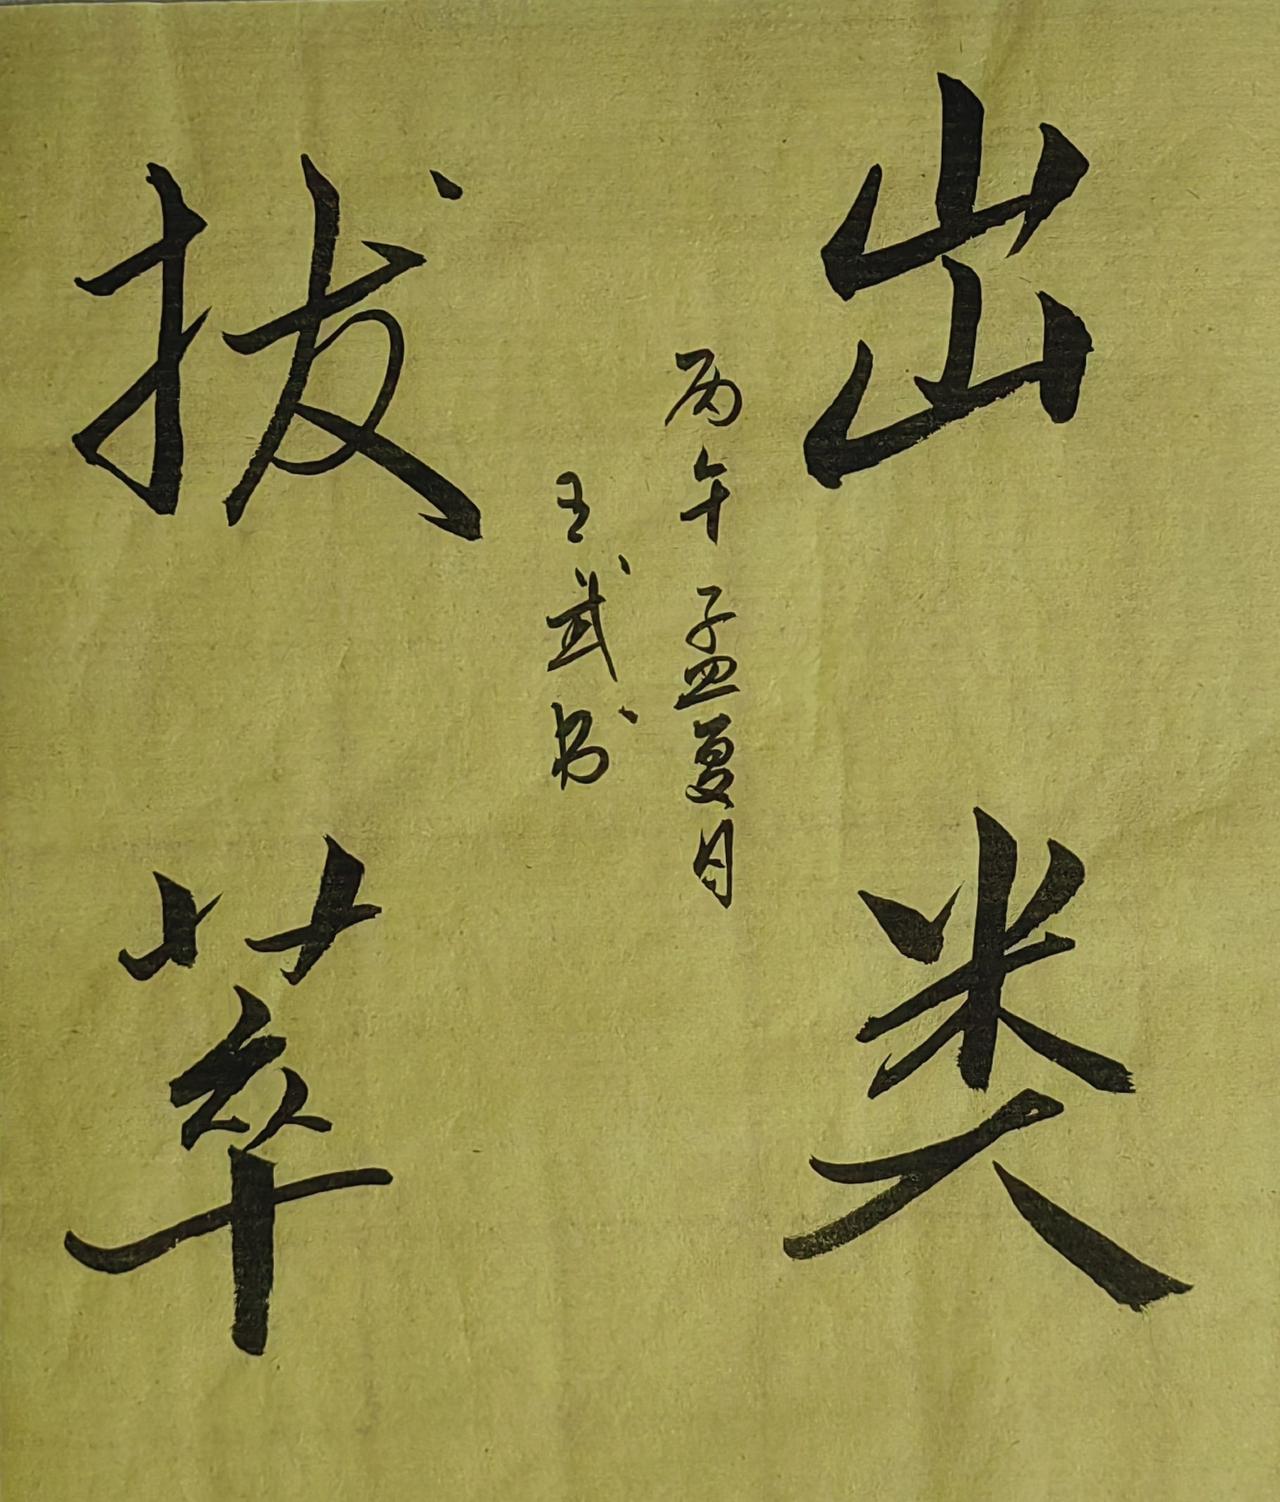 出类
丙午孟夏月
王武书
拔萃